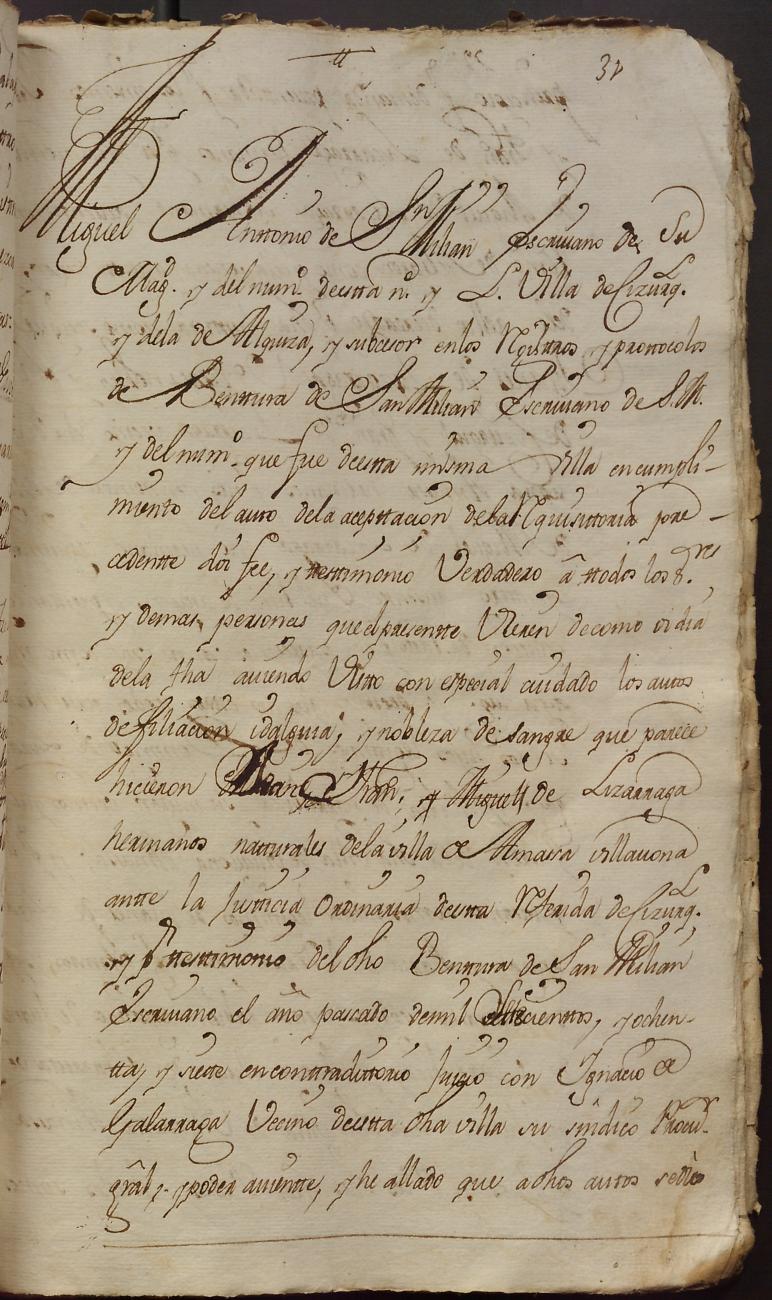 32
Miguel Anttonio de Sn Milian Escriuano de Su
Magd. y del numo. de estta n. y L. Villa de Cizurql.
y dela de Alquiza, y subcesor en los Rexisttros, y prottocolos
de Benttura de San Milian Escriuano de S. M.
y del numo. que fue de estta misma Villa en cumpli-
mientto del autto dela aceptacion dela Rquisittoria pre-
cedentte doi fee, y testtimonio Verdadero â ttodos los S.res
y demas personas que el presentte Vieren de como oi dia
dela fha auiendo Vistto con especial cuidado los auttos
de filiacion idalguia, y nobleza de sangre que parece
hicieron Fran, y Miguel de Lizarraga
hermanos natturales dela villa de Amasa villauona
antte la Justticia Ordinaria de estta Rferida de Cizurql.
y pr testtimonio del dho Benttura de San Milian
Escriuano el año passado de mil seiscienttos, y ochen-
tta, y siette en conttradittorio Juicio con Ignacio de
Galarraga Vecino de estta dha villa su sindico Procur.
gral, y poder auientte, y he allado que a dhos auttos se dio